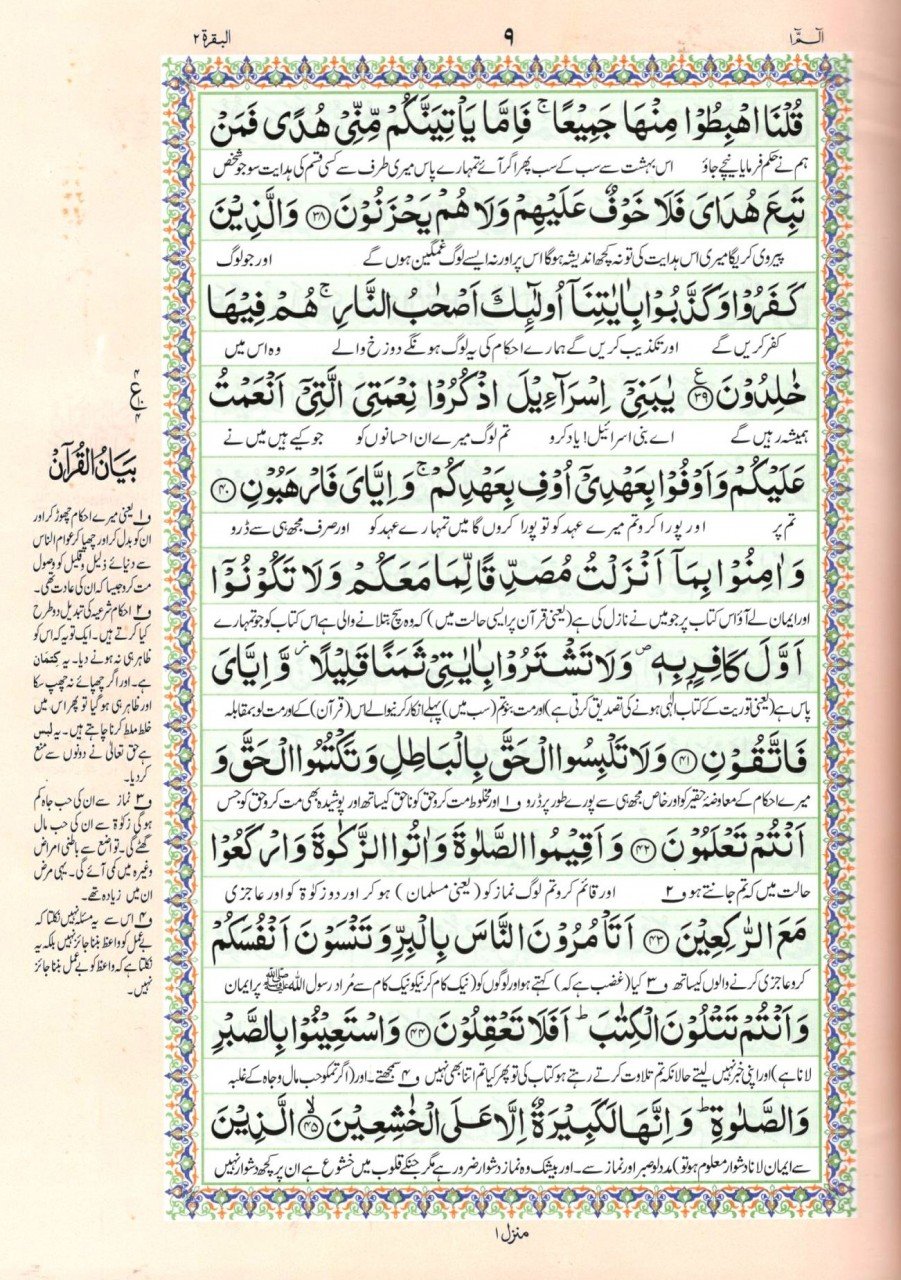 الٓمّٓ ۱
۹
البقرة ۲
قُلْنَا اهْبِطُوْا مِنْهَا جَمِيْعًا ۚ فَاِمَّا يَاْتِيَنَّكُمْ مِّنِّيْ هُدًى فَمَنْ
ہم نے حکم فرمایا نیچے جاؤ اس بہشت سے سب کے سب پھر اگر آئے تمہارے پاس میری طرف سے کسی قسم کی ہدایت سو جو شخص
تَبِعَ هُدَايَ فَلَا خَوْفٌ عَلَيْهِمْ وَلَا هُمْ يَحْزَنُوْنَ ۝۳۸ وَالَّذِيْنَ
پیروی کریگا میری اس ہدایت کی تو نہ کچھ اندیشہ ہوگا اس پر اور نہ ایسے لوگ غمگین ہوں گے اور جو لوگ
كَفَرُوْا وَكَذَّبُوْا بِاٰيٰتِنَآ اُولٰٓئِكَ اَصْحٰبُ النَّارِ ۚ هُمْ فِيْهَا
کفر کریں گے اور تکذیب کریں گے ہمارے احکام کی یہ لوگ ہونگے دوزخ والے وہ اس میں
خٰلِدُوْنَ ۝۳۹ ع يٰبَنِيْٓ اِسْرَآءِيْلَ اذْكُرُوْا نِعْمَتِيَ الَّتِيْٓ اَنْعَمْتُ
ہمیشہ رہیں گے اے بنی اسرائیل! یاد کرو تم لوگ میرے ان احسانوں کو جو کیے ہیں میں نے
عَلَيْكُمْ وَاَوْفُوْا بِعَهْدِيْٓ اُوْفِ بِعَهْدِكُمْ ۚ وَاِيَّايَ فَارْهَبُوْنِ ۝۴۰
تم پر اور پورا کرو تم میرے عہد کو تو پورا کروں گا میں تمہارے عہد کو اور صرف مجھ ہی سے ڈرو
وَاٰمِنُوْا بِمَآ اَنْزَلْتُ مُصَدِّقًا لِّمَا مَعَكُمْ وَلَا تَكُوْنُوْٓا
اور ایمان لے آؤ اس کتاب پر جو میں نے نازل کی ہے (یعنی قرآن پر ایسی حالت میں) کہ وہ سچ بتلانے والی ہے اس کتاب کو جو تمہارے
اَوَّلَ كَافِرٍۭ بِهٖ ۪ وَلَا تَشْتَرُوْا بِاٰيٰتِيْ ثَمَنًا قَلِيْلًا ۫ وَّاِيَّايَ
پاس ہے (یعنی توریت کے کتاب الٰہی ہونے کی تصدیق کرتی ہے) اور مت بنو تم (سب میں) پہلے انکار کرنیوالے اس (قرآن) کے اور مت لو بمقابلہ
فَاتَّقُوْنِ ۝۴۱ وَلَا تَلْبِسُوا الْحَقَّ بِالْبَاطِلِ وَتَكْتُمُوا الْحَقَّ وَ
میرے احکام کے معاوضۂ حقیر کو اور خاص مجھ ہی سے پورے طور پر ڈرو ف۱ اور مخلوط مت کرو حق کو ناحق کیساتھ اور پوشیدہ بھی مت کرو حق کو جس
اَنْتُمْ تَعْلَمُوْنَ ۝۴۲ وَاَقِيْمُوا الصَّلٰوةَ وَاٰتُوا الزَّكٰوةَ وَارْكَعُوْا
حالت میں کہ تم جانتے ہو ف۲ اور قائم کرو تم لوگ نماز کو (یعنی مسلمان) ہو کر اور دو زکوٰۃ کو اور عاجزی
مَعَ الرّٰكِعِيْنَ ۝۴۳ اَتَاْمُرُوْنَ النَّاسَ بِالْبِرِّ وَتَنْسَوْنَ اَنْفُسَكُمْ
کرو عاجزی کرنے والوں کیساتھ ف۳ کیا (غضب ہے کہ) کہتے ہو اور لوگوں کو (نیک کام کرنیکو نیک کام سے مراد رسول اللہ ﷺ پر ایمان
وَاَنْتُمْ تَتْلُوْنَ الْكِتٰبَ ؕ اَفَلَا تَعْقِلُوْنَ ۝۴۴ وَاسْتَعِيْنُوْا بِالصَّبْرِ
لانا ہے) اور اپنی خبر نہیں لیتے حالانکہ تم تلاوت کرتے رہتے ہو کتاب کی تو پھر کیا تم اتنا بھی نہیں ف۴ سمجھتے۔ اور (اگر تمکو حب مال و جاہ کے غلبہ
وَالصَّلٰوةِ ؕ وَاِنَّهَا لَكَبِيْرَةٌ اِلَّا عَلَى الْخٰشِعِيْنَ ۝۴۵ۙ الَّذِيْنَ
سے ایمان لانا دشوار معلوم ہو تو) مدد لو صبر اور نماز سے۔ اور بیشک وہ نماز دشوار ضرور ہے مگر جنکے قلوب میں خشوع ہے ان پر کچھ دشوار نہیں
۴
ع
۴
بَيَانُ القُرآن
ف۱ یعنی میرے احکام چھوڑ کر اور
ان کو بدل کر اور چھپا کر عوام الناس
سے دنیائے ذلیل و قلیل کو وصول
مت کرو جیسا کہ ان کی عادت تھی۔
ف۲ احکام شرعیہ کی تبدیل دو طرح
کیا کرتے ہیں۔ ایک تو یہ کہ اس کو
ظاہر ہی نہ ہونے دیا۔ یہ کتمان
ہے۔ اور اگر چھپائے نہ چھپ سکا
اور ظاہر ہی ہو گیا تو پھر اس میں
خلط ملط کرنا چاہتے ہیں۔ یہ لبس
ہے حق تعالیٰ نے دونوں سے منع
کردیا۔
ف۳ نماز سے ان کی حب جاہ کم
ہوگی زکوٰۃ سے ان کی حب مال
گھٹے گی۔ تواضع سے باطنی امراض
وغیرہ میں کمی آئے گی۔ یہی مرض
ان میں زیادہ تھے۔
ف۴ اس سے یہ مسئلہ نہیں نکلتا کہ
بے عمل کو واعظ بننا جائز نہیں بلکہ یہ
نکلتا ہے کہ واعظ کو بے عمل بننا جائز
نہیں۔
منزل ۱